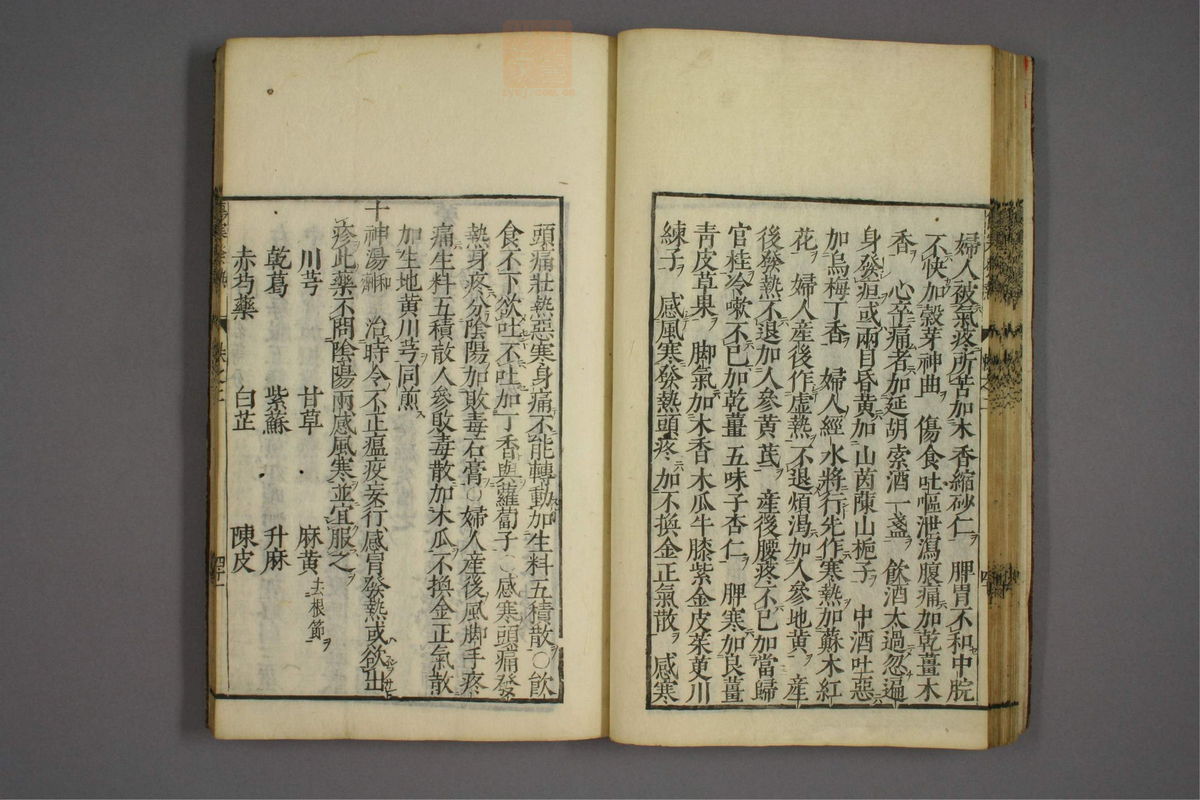 婦人被氣疼所苦加木香縮砂仁 脾胃不和中脘
不快加穀芽神曲 傷食吐嘔泄瀉腹痛加乾薑木
香 心卒痛者加延胡索酒一盞 飲酒太過忽遍
身發疸或兩目昏黄加山茵蔯山梔子 中酒吐惡
加烏梅丁香 婦人經水將行先作寒熱加蘇木紅
花 婦人産後作虚熱不退煩渴加人參地黄 産
後發熱不退加人參黄芪 産後腰疼不已加當歸
官桂冷嗽不已加乾薑五味子杏仁 脾寒加良薑
青皮草果 脚氣加木香木瓜牛膝紫金皮茱萸川
練子 感風寒發熱頭疼加不換金正氣散 感寒
頭痛壯熱惡寒身痛不能轉動加生料五積散○飲
食不下欲吐不吐加丁香與蘿蔔子○感寒頭痛發
熱身疼分陰陽加敗毒石膏○婦人産後風脚手疼
痛生料五積散人參敗毒散加木瓜不換金正氣散
加生地黄川芎同煎
十神湯和劑 治時令不正瘟疫妄行感冒發熱或欲出
疹此藥不問陰陽兩感風寒並宜服之
川芎 甘草 麻黄去根節
乾葛 紫蘇 升麻
赤芍藥 白芷 陳皮